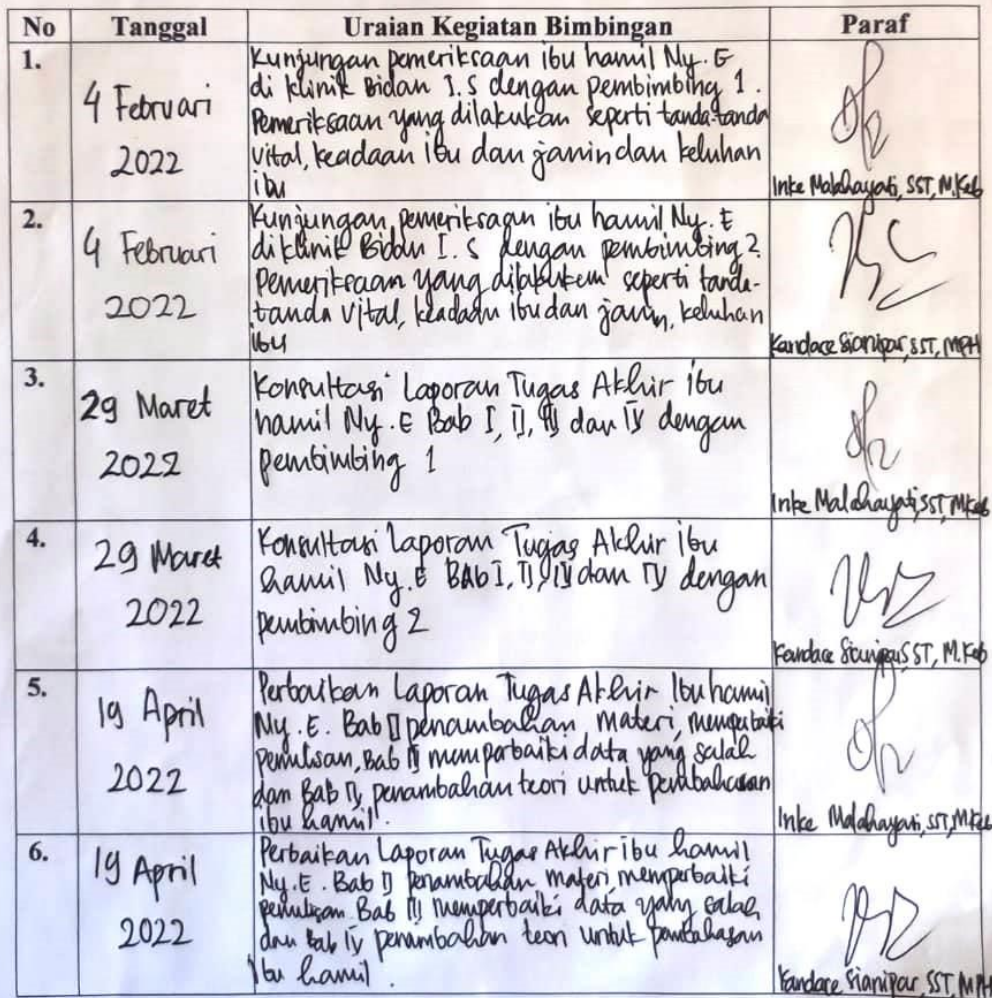 No Tanggal Uraian Kegiatan Bimbingan Paraf
1.
4 Februari
2022
Kunjungan pemeriksaan ibu hamil Ny. E
di klinik Bidan I.S dengan pembimbing 1.
Pemeriksaan yang dilakukan seperti tanda-tanda
vital, keadaan ibu dan janin dan keluhan
ibu
Inke Malahayati, SST, M.Keb
2.
4 Februari
2022
Kunjungan pemeriksaan ibu hamil Ny. E
di klinik Bidan I.S dengan pembimbing 2
Pemeriksaan yang dilakukan seperti tanda-
tanda vital, keadaan ibu dan janin, keluhan
ibu
Kandace Sianipar, SST, MPH
3.
29 Maret
2022
Konsultasi Laporan Tugas Akhir ibu
hamil Ny. E Bab I, II, III dan IV dengan
pembimbing 1
Inke Malahayati, SST, M.Keb
4.
29 Maret
2022
Konsultasi Laporan Tugas Akhir ibu
hamil Ny. E BAb I, II, III dan IV dengan
pembimbing 2
Kandace Sianipar SST, M.Keb
5.
19 April
2022
Perbaikan Laporan Tugas Akhir Ibu hamil
Ny. E. Bab II penambahan materi, memperbaiki
penulisan, Bab III memperbaiki data yang salah
dan Bab IV penambahan teori untuk pembahasan
ibu hamil.
Inke Malahayati, SST, M.Keb
6.
19 April
2022
Perbaikan Laporan Tugas Akhir ibu hamil
Ny. E. Bab II penambahan materi, memperbaiki
penulisan Bab III memperbaiki data yang salah
dan Bab IV penambahan teori untuk pembahasan
Ibu hamil.
Kandace Sianipar, SST, MPH